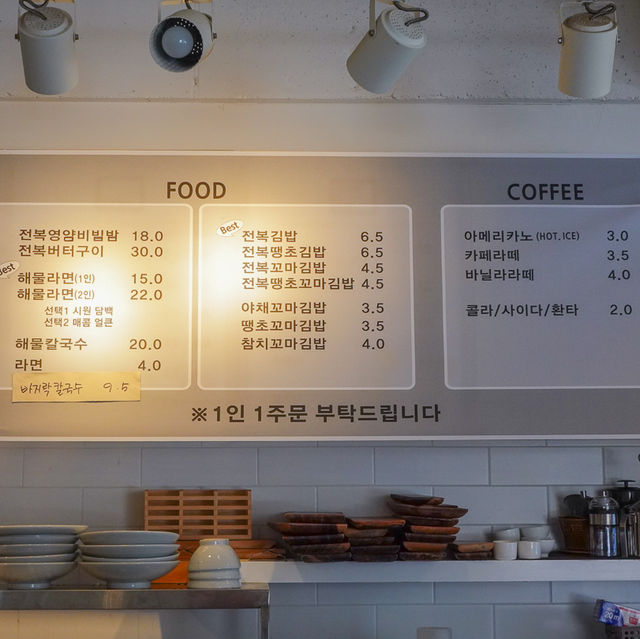 FOOD
전복영양비빔밥 18.0
전복버터구이 30.0
Best
해물라면(1인) 15.0
해물라면(2인) 22.0
선택1 시원 담백
선택2 매콤 얼큰
해물칼국수 20.0
라면 4.0
바지락칼국수 9.5
Best
전복김밥 6.5
전복땡초김밥 6.5
전복꼬마김밥 4.5
전복땡초꼬마김밥 4.5
야채꼬마김밥 3.5
땡초꼬마김밥 3.5
참치꼬마김밥 4.0
COFFEE
아메리카노(HOT.ICE) 3.0
카페라떼 3.5
바닐라라떼 4.0
콜라/사이다/환타 2.0
※1인 1주문 부탁드립니다